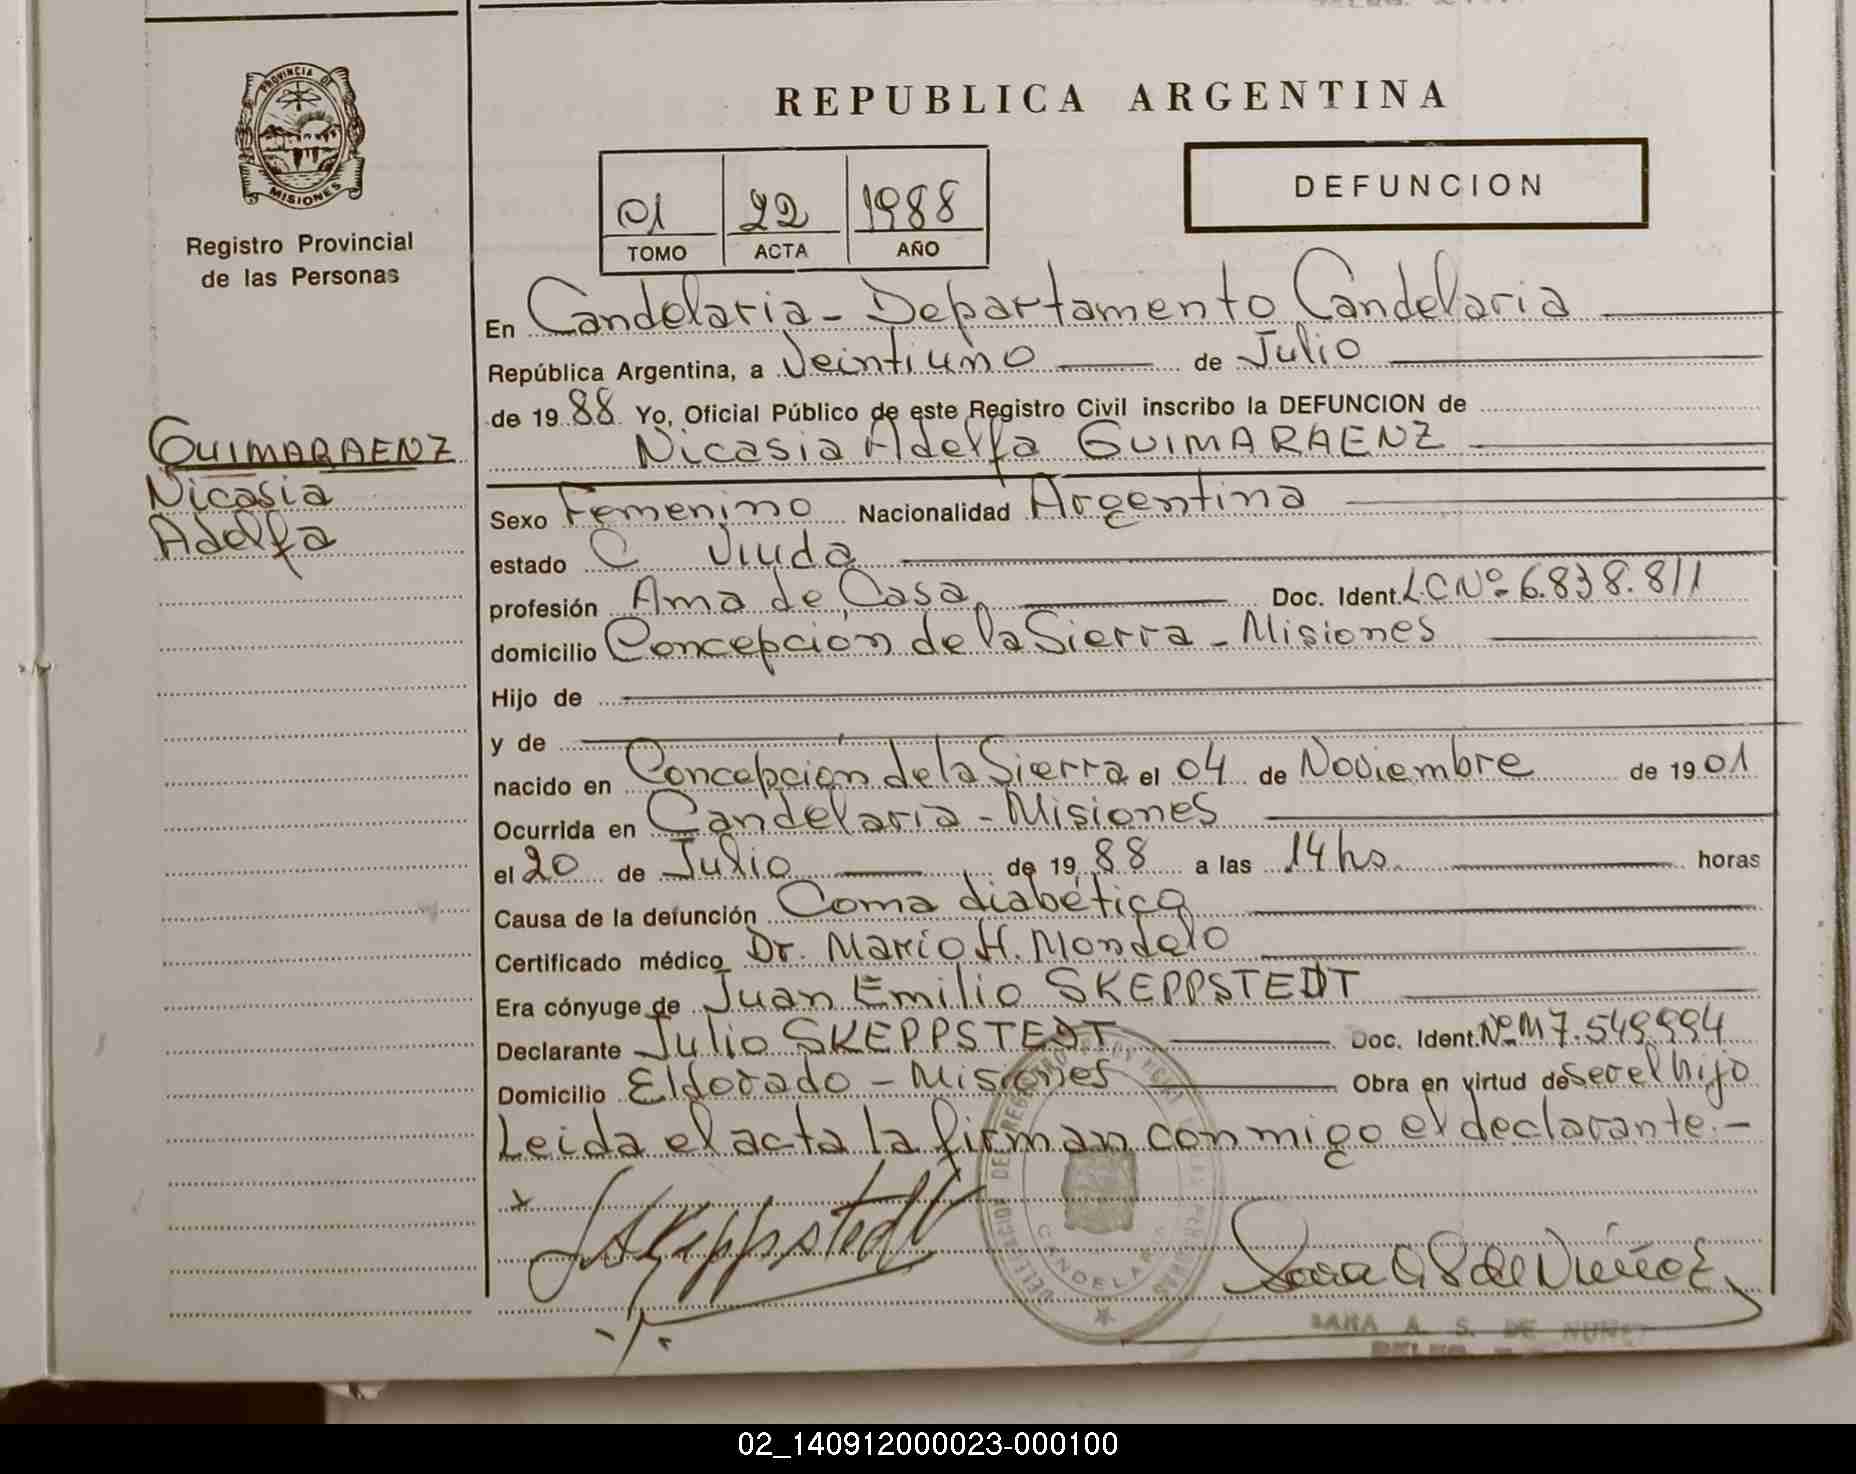 PROVINCIA DE
MISIONES
Registro Provincial
de las Personas
REPUBLICA ARGENTINA
DEFUNCION
01 22 1988
TOMO ACTA AÑO
En Candelaria - Departamento Candelaria
República Argentina, a Veintiuno de Julio
de 19 88 Yo, Oficial Público de este Registro Civil inscribo la DEFUNCION de
Nicasia Adelfa GUIMARAENZ
GUIMARAENZ
Nicasia
Adelfa
Sexo Femenino Nacionalidad Argentina
estado C Viuda
profesión Ama de Casa Doc. Ident. L.C.Nº 6.838.811
domicilio Concepción de la Sierra - Misiones
Hijo de
y de
nacido en Concepción de la Sierra el 04 de Noviembre de 19 01
Ocurrida en Candelaria - Misiones
el 20 de Julio de 19 88 a las 14 hs. horas
Causa de la defunción Coma diabético
Certificado médico Dr. Mario H. Mondelo
Era cónyuge de Juan Emilio SKEPPSTEDT
Declarante Julio SKEPPSTEDT Doc. Ident. Nº M 7.549.994
Domicilio Eldorado - Misiones Obra en virtud de ser el hijo
Leida el acta la firman conmigo el declarante.-
JSkeppstedt
Sara A S de Nuñez
CANDELARIA
SARA A. S. DE NUÑEZ
02_140912000023-000100